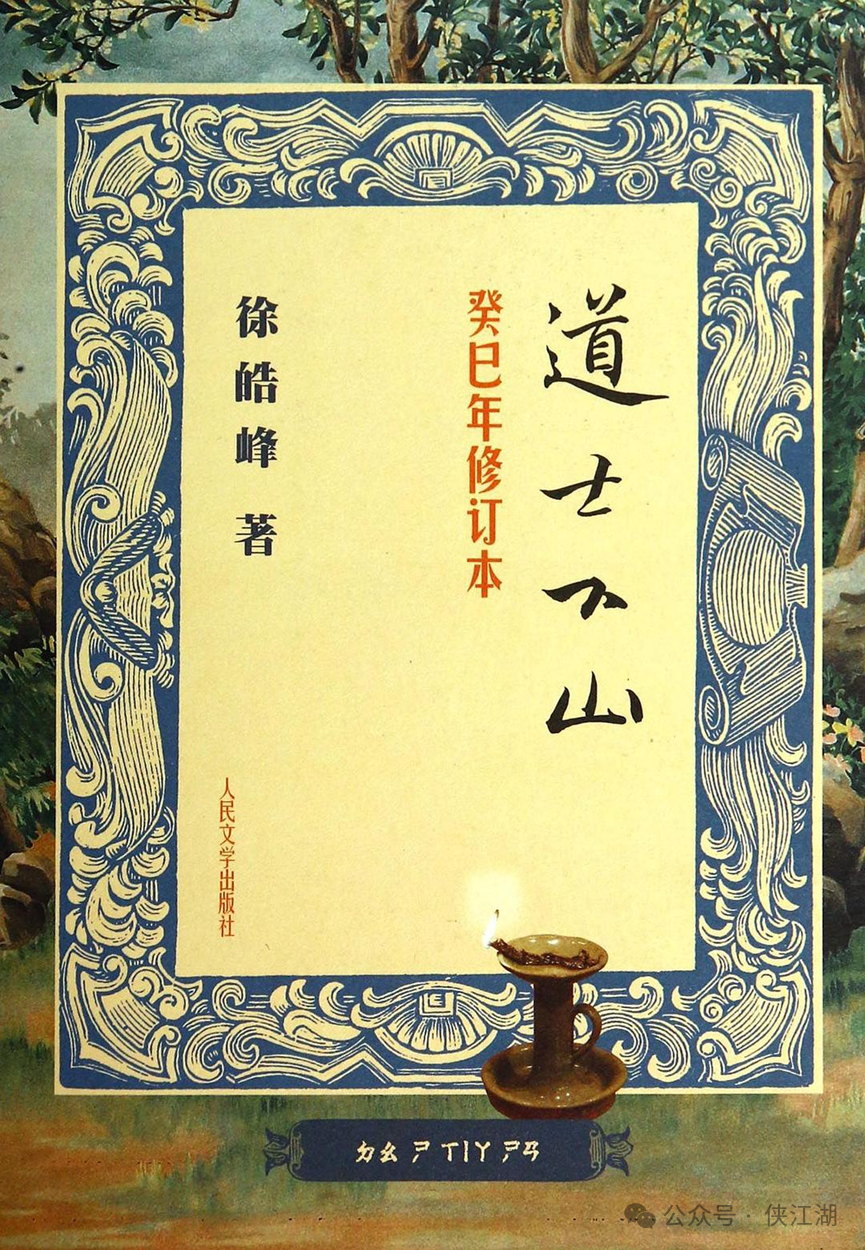 道士下山
癸巳年修订本
徐皓峰 著
人民文学出版社
ㄉㄠ ㄕ ㄒㄧㄚ ㄕㄢ
公众号 · 侠江湖